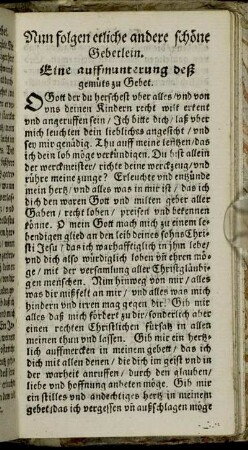 Nun folgen etliche andere schöne
Gebetlein.
Eine auffmunterung deß
gemüts zu Gebet.
O Gott der du herschest vber alles/vnd von
vns deinen Kindern recht wilt erkent
vnd angeruffen sein/ Ich bitte dich/ laß vber
mich leuchten dein liebliches angesicht/ vnd
sey mir genädig. Thu auff meine leftzen/das
ich dein lob möge verkündigen. Du heist allein
der werckmeister/ richte deine werckzeug/vnd
rühre meine zunge? Erleuchte vnd enzünde
mein hertz/ vnd alles was in mir ist/ das ich
dich den waren Gott vnd milten geber aller
Gaben/ recht loben/ preisen vnd bekennen
könne. O mein Gott mach mich zu eim le-
bendigen glied an den leib deines sohns Chri-
sti Jesu/ das ich warhafftiglich in jhm lebe/
vnd dich also würdiglich loben vñ ehren mö-
ge/ mit der versamlung aller Christgläubi-
gen menschen. Nim hinweg von mir/ alles
was dir mißfelt an mir/ vnd alles was mich
hindern vnd irren mag gegen dir: Gib mir
alles daß mich fördert zu dir/sonderlich aber
einen rechten Christlichen fürsatz in allen
meinem thun vnd lassen. Gib mir ein hertz-
lich auffmercken in meinem gebett/ das ich
dich mit allen denen/ die dich im geist vnd in
der warheit anruffen/ durch den glauben/
liebe vnd hoffnung anbeten möge. Gib mir
ein stilles vnd andechtiges hertz in meinem
gebet/das ich vergessen vñ außschlagen möge